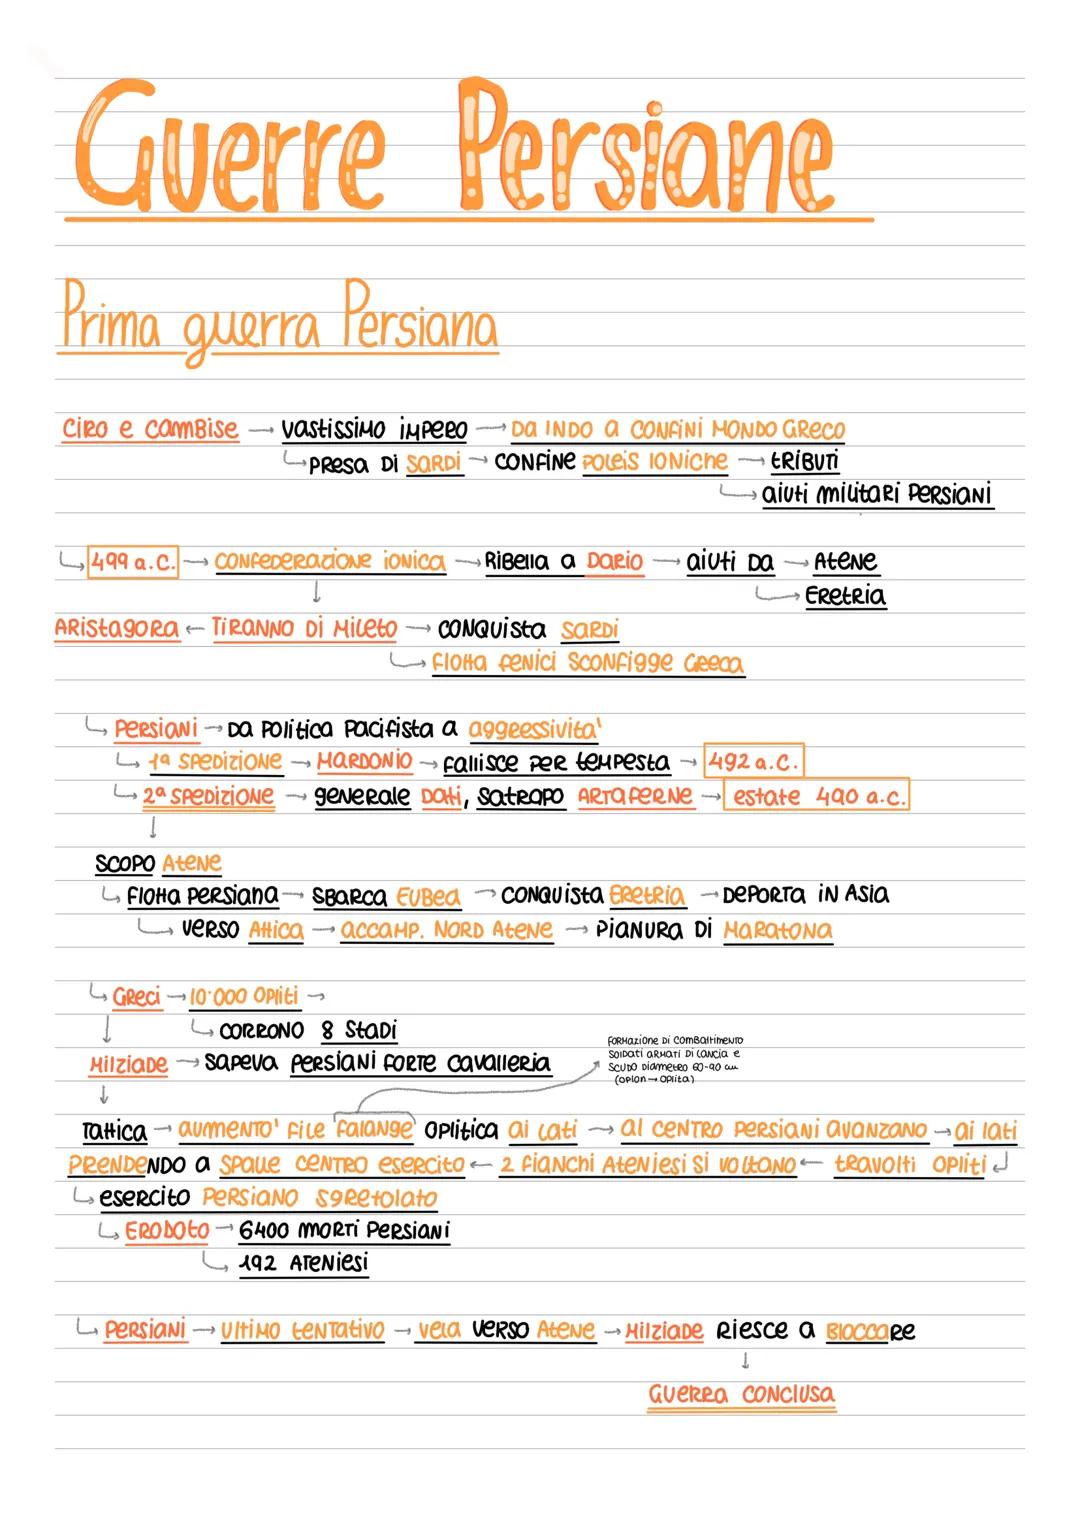 Guerre Persiane
Prima guerra Persiana
Ciro e Cambise → vastissimo impero → da Indo a confini mondo greco
↳ presa di Sardi → confine poleis ioniche → tributi
↳ aiuti militari persiani
↳ 499 a.C. → confederazione ionica → ribella a Dario → aiuti da → Atene
↳ Eretria
↓
Aristagora ← tiranno di Mileto → conquista Sardi
↳ flotta fenici sconfigge greca
↳ Persiani → da politica pacifista a aggressivita'
↳ 1ª spedizione → Mardonio → fallisce per tempesta → 492 a.C.
↳ 2ª spedizione → generale Dati, satrapo Artaferne → estate 490 a.C.
↓
scopo Atene
↳ flotta persiana → sbarca Eubea → conquista Eretria → deporta in Asia
↳ verso Attica → accamp. nord Atene → pianura di Maratona
↳ Greci → 10·000 opliti →
↓ ↳ corrono 8 stadi
Milziade → sapeva persiani forte cavalleria
formazione di combattimento
soldati armati di lancia e
scudo diametro 60-90 cm
(oplon → oplita)
↓
Tattica → aumento' file falange oplitica ai lati → al centro persiani avanzano → ai lati
prendendo a spalle centro esercito ← 2 fianchi ateniesi si voltano ← travolti opliti ↲
↳ esercito persiano sgretolato
↳ Erodoto → 6400 morti persiani
↳ 192 ateniesi
↳ Persiani → ultimo tentativo → vela verso Atene → Milziade riesce a bloccare
↓
guerra conclusa